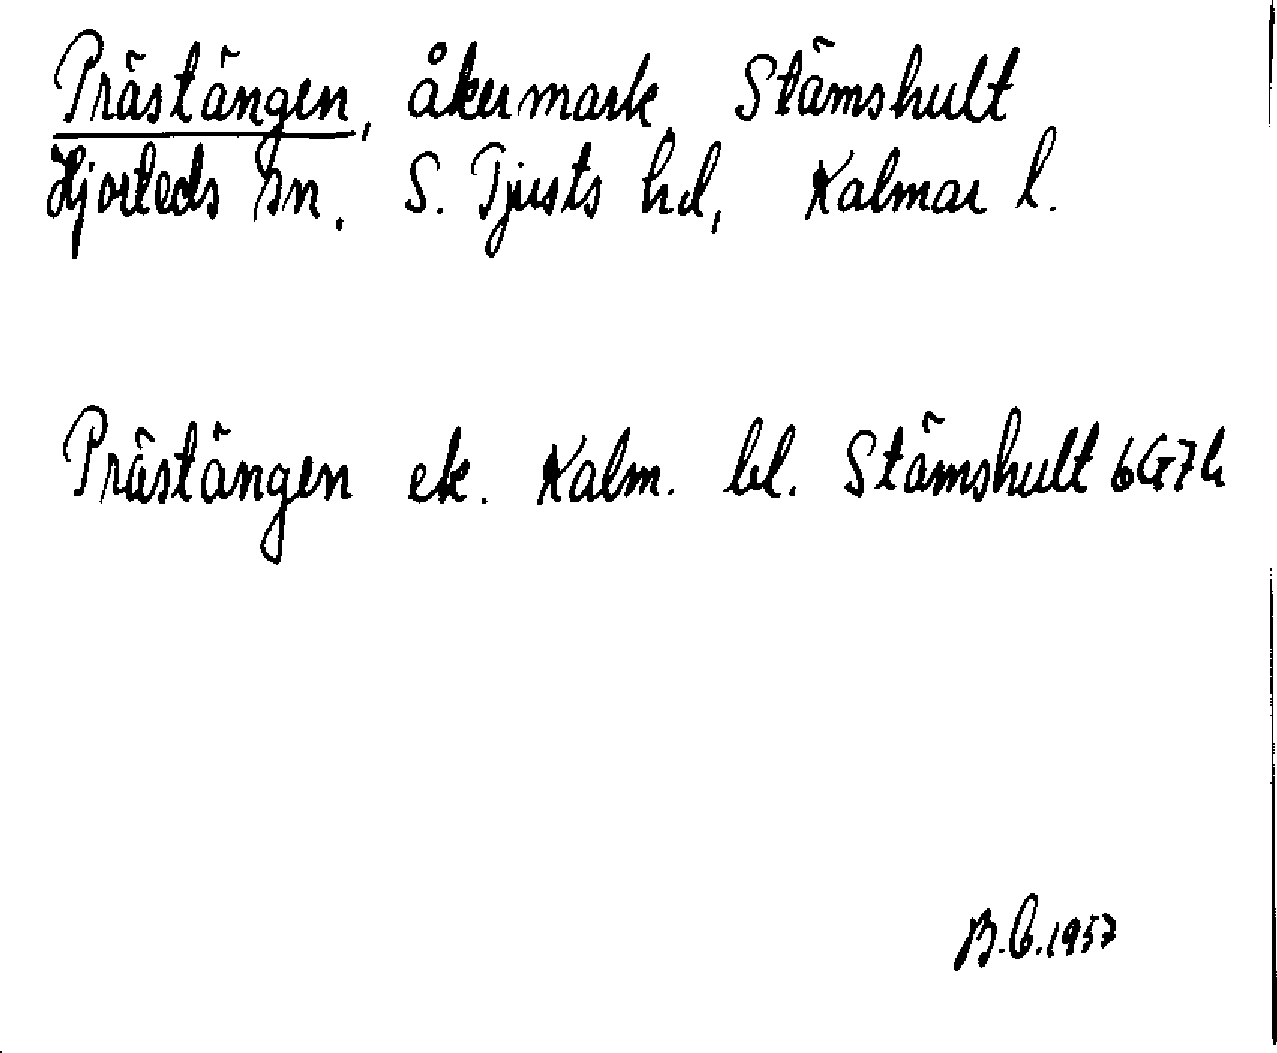 Prästängen, åkermark, Stämshult
Hjorteds sn. S. Tjusts hd, Kalmar l.
Prästängen ek. Kalm. bl. Stämshult 6G7h
B.C.1957